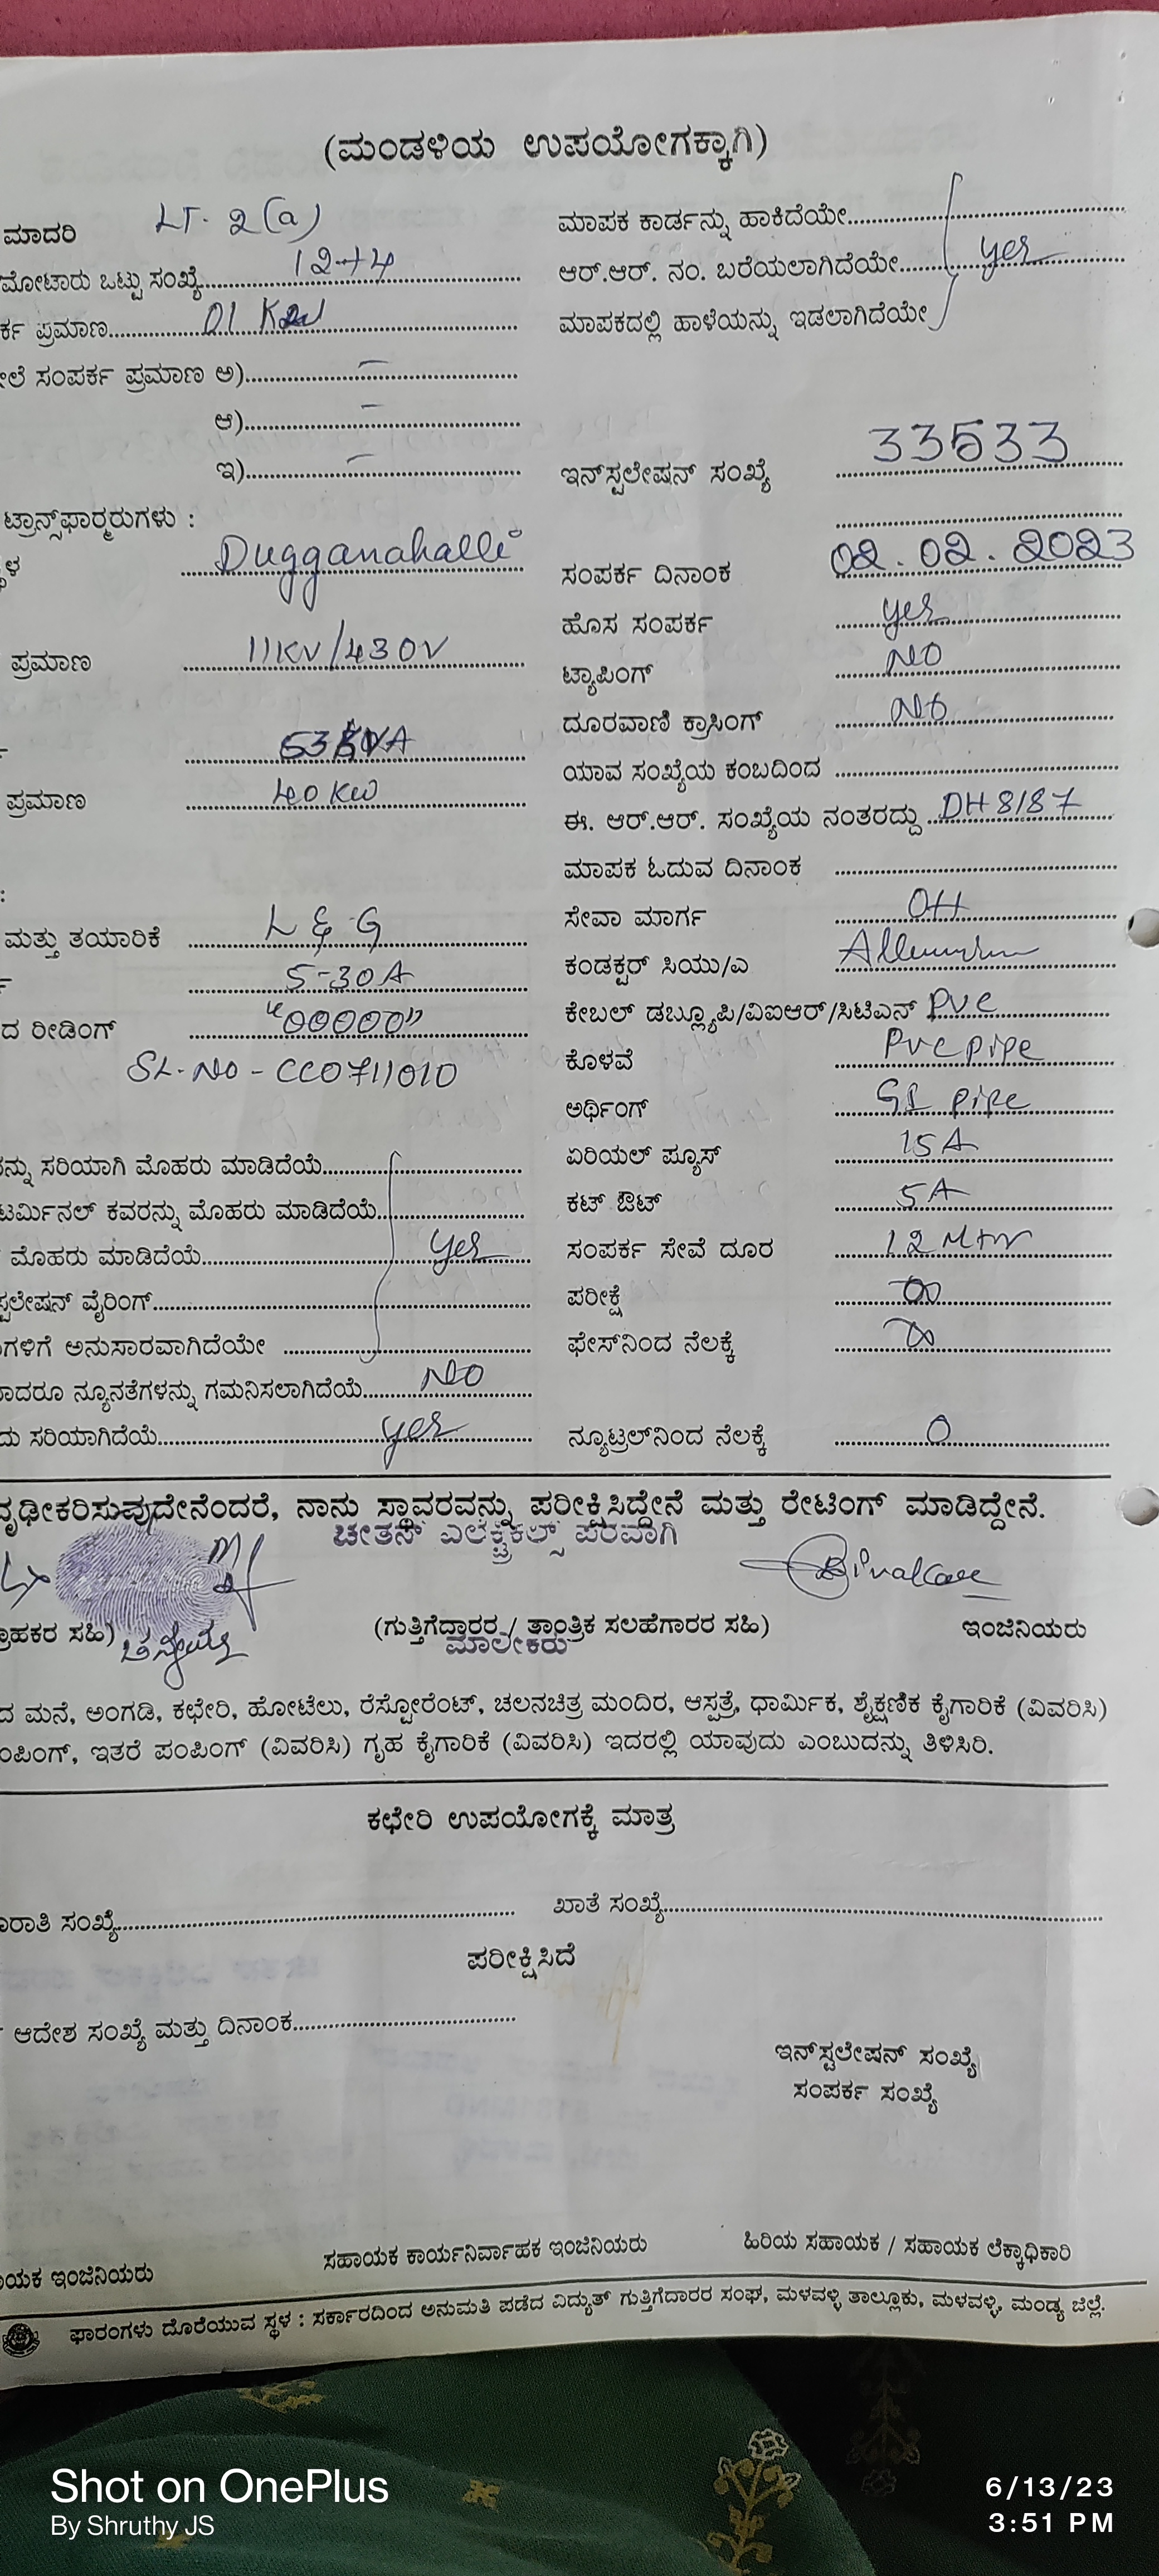 (ಮಂಡಳಿಯ ಉಪಯೋಗಕ್ಕಾಗಿ)
ಮಾದರಿ LT. 2(a)
ಮೋಟಾರು ಒಟ್ಟು ಸಂಖ್ಯೆ 12+4
ರ್ಕ ಪ್ರಮಾಣ 01 Kw
ೀಲೆ ಸಂಪರ್ಕ ಪ್ರಮಾಣ ಅ) –
ಆ) –
ಇ) –
ಟ್ರಾನ್ಸ್‌ಫಾರ್‍ಮರುಗಳು :
ಳ Dugganahalli
ಪ್ರಮಾಣ 11KV/430V
63
ಪ್ರಮಾಣ 40 KW
:
ಮತ್ತು ತಯಾರಿಕೆ L & G
5-30A
ದ ರೀಡಿಂಗ್ "00000"
SL.NO - CC0711010
ನ್ನು ಸರಿಯಾಗಿ ಮೊಹರು ಮಾಡಿದೆಯೆ
ಟರ್ಮಿನಲ್ ಕವರನ್ನು ಮೊಹರು ಮಾಡಿದೆಯೆ
ಮೊಹರು ಮಾಡಿದೆಯೆ yes
ಸ್ಟಲೇಷನ್ ವೈರಿಂಗ್
ಗಳಿಗೆ ಅನುಸಾರವಾಗಿದೆಯೇ
ಾದರೂ ನ್ಯೂನತೆಗಳನ್ನು ಗಮನಿಸಲಾಗಿದೆಯೆ NO
ದು ಸರಿಯಾಗಿದೆಯೆ yes
ಮಾಪಕ ಕಾರ್ಡನ್ನು ಹಾಕಿದೆಯೇ
ಆರ್.ಆರ್. ನಂ. ಬರೆಯಲಾಗಿದೆಯೇ yes
ಮಾಪಕದಲ್ಲಿ ಹಾಳೆಯನ್ನು ಇಡಲಾಗಿದೆಯೇ
ಇನ್‌ಸ್ಟಲೇಷನ್ ಸಂಖ್ಯೆ 33533
ಸಂಪರ್ಕ ದಿನಾಂಕ 02.02.2023
ಹೊಸ ಸಂಪರ್ಕ yes
ಟ್ಯಾಪಿಂಗ್ NO
ದೂರವಾಣಿ ಕ್ರಾಸಿಂಗ್ NO
ಯಾವ ಸಂಖ್ಯೆಯ ಕಂಬದಿಂದ
ಈ. ಆರ್.ಆರ್. ಸಂಖ್ಯೆಯ ನಂತರದ್ದು DH 8187
ಮಾಪಕ ಓದುವ ದಿನಾಂಕ
ಸೇವಾ ಮಾರ್ಗ OH
ಕಂಡಕ್ಟರ್ ಸಿಯು/ಎ
ಕೇಬಲ್ ಡಬ್ಲ್ಯೂಪಿ/ವಿಐಆರ್/ಸಿಟಿಎನ್ PVC
ಕೊಳವೆ Pvc pipe
ಅರ್ಥಿಂಗ್ GI pipe
ಏರಿಯಲ್ ಫ್ಯೂಸ್ 15 A
ಕಟ್ ಔಟ್ 5A
ಸಂಪರ್ಕ ಸೇವೆ ದೂರ 12 Mtr
ಪರೀಕ್ಷೆ ∞
ಫೇಸ್‌ನಿಂದ ನೆಲಕ್ಕೆ ∞
ನ್ಯೂಟ್ರಲ್‌ನಿಂದ ನೆಲಕ್ಕೆ 0
ದೃಢೀಕರಿಸುವುದೇನೆಂದರೆ, ನಾನು ಸ್ಥಾವರವನ್ನು ಪರೀಕ್ಷಿಸಿದ್ದೇನೆ ಮತ್ತು ರೇಟಿಂಗ್ ಮಾಡಿದ್ದೇನೆ.
ಚೇತನ್ ಎಲೆಕ್ಟ್ರಿಕಲ್ಸ್ ಪರವಾಗಿ
್ರಾಹಕರ ಸಹಿ) (ಗುತ್ತಿಗೆದ್ದಾರರ / ತಾಂತ್ರಿಕ ಸಲಹೆಗಾರರ ಸಹಿ) ಇಂಜಿನಿಯರು
ಮಾಲೀಕರು
ದ ಮನೆ, ಅಂಗಡಿ, ಕಛೇರಿ, ಹೋಟೆಲು, ರೆಸ್ಟೋರೆಂಟ್, ಚಲನಚಿತ್ರ ಮಂದಿರ, ಆಸ್ಪತ್ರೆ, ಧಾರ್ಮಿಕ, ಶೈಕ್ಷಣಿಕ ಕೈಗಾರಿಕೆ (ವಿವರಿಸಿ)
ಂಪಿಂಗ್, ಇತರೆ ಪಂಪಿಂಗ್ (ವಿವರಿಸಿ) ಗೃಹ ಕೈಗಾರಿಕೆ (ವಿವರಿಸಿ) ಇದರಲ್ಲಿ ಯಾವುದು ಎಂಬುದನ್ನು ತಿಳಿಸಿರಿ.
ಕಛೇರಿ ಉಪಯೋಗಕ್ಕೆ ಮಾತ್ರ
ರಾತಿ ಸಂಖ್ಯೆ ಖಾತೆ ಸಂಖ್ಯೆ
ಪರೀಕ್ಷಿಸಿದೆ
ಆದೇಶ ಸಂಖ್ಯೆ ಮತ್ತು ದಿನಾಂಕ
ಇನ್‌ಸ್ಟಲೇಷನ್ ಸಂಖ್ಯೆ
ಸಂಪರ್ಕ ಸಂಖ್ಯೆ
ಾಯಕ ಇಂಜಿನಿಯರು ಸಹಾಯಕ ಕಾರ್ಯನಿರ್ವಾಹಕ ಇಂಜಿನಿಯರು ಹಿರಿಯ ಸಹಾಯಕ / ಸಹಾಯಕ ಲೆಕ್ಕಾಧಿಕಾರಿ
ಫಾರಂಗಳು ದೊರೆಯುವ ಸ್ಥಳ : ಸರ್ಕಾರದಿಂದ ಅನುಮತಿ ಪಡೆದ ವಿದ್ಯುತ್ ಗುತ್ತಿಗೆದಾರರ ಸಂಘ, ಮಳವಳ್ಳಿ ತಾಲ್ಲೂಕು, ಮಳವಳ್ಳಿ, ಮಂಡ್ಯ ಜಿಲ್ಲೆ.
Shot on OnePlus
By Shruthy JS
6/13/23
3:51 PM